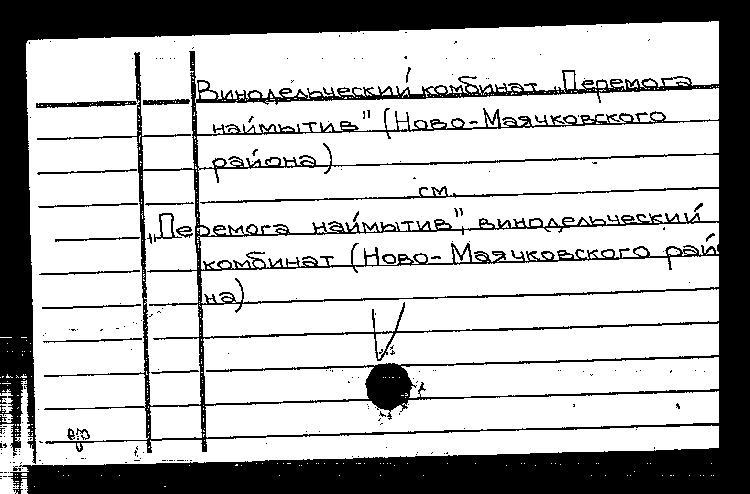 Винодельческий комбинат „Перемога
наймытив" (Ново-Маячковского
района)
см.
„Перемога наймытив", винодельческий
комбинат (Ново-Маячковского райо
на)